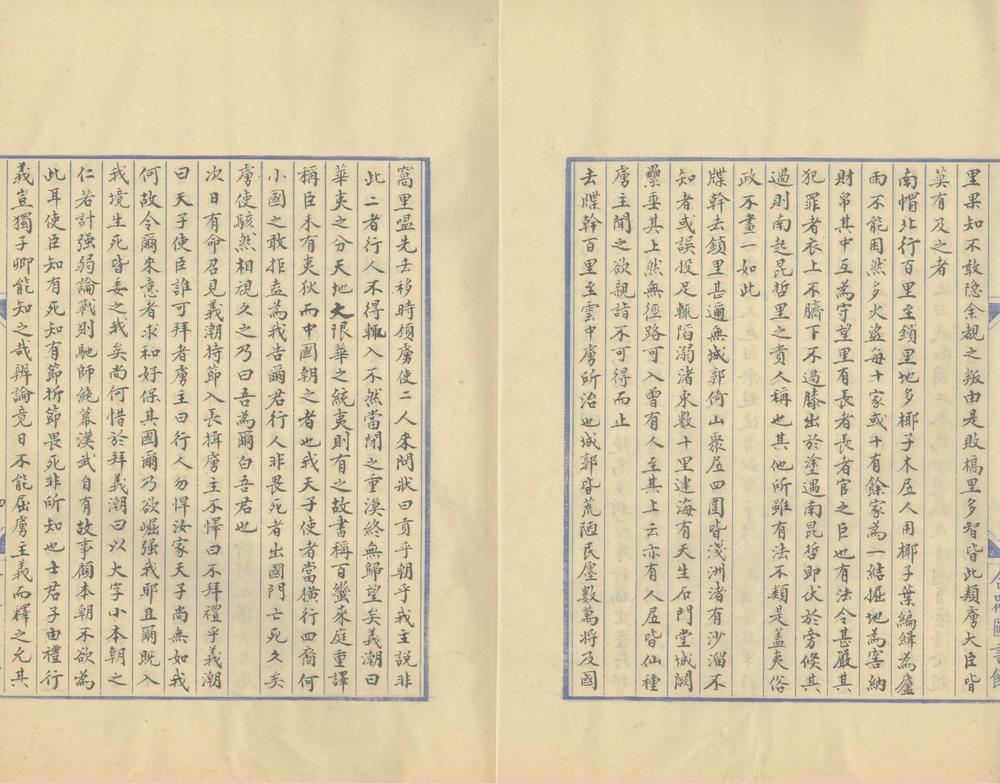 里果知不敢隐余靓之叛由是敗楊里多智皆此類虜大臣皆
莫有及之者
南帽北行百里至鎖里地多椰子木居人用椰子葉編緝為廬
雨不能困然多火盗每十家或十有餘家為一結掘地為窖納
財帛其中互為守望里有長者長者官之臣也有法令甚嚴其
犯罪者衣上不臍下不過膝出於塗遇南昆哲即伏於旁候其
過則南起昆哲里之貴人稱也其他所雖有法不類是盖夷俗
政不畫一如此
牒幹去鎖里甚邇無城郭倚山聚居四圍皆淺洲渚有沙溜不
知者或誤投足輒䧟溺渚東數十里連海有天生石門堂城闕
纍垂其上然無徑路可入曽有人至其上云亦有人居皆仙種
虜主聞之欲親詣不可得而止
去牒幹百里至雲中虜所治也城郭皆荒陋民廛數萬將及國
窩里嗢先去移時領虜使二人來問狀曰貢乎朝乎我主說非
此二者行人不得輒入不然當閉之重漢終無歸望矣義潮曰
華夷之分天地大限華之統夷則有之故書稱百蠻來庭重譯
稱臣未有夷狄而中國朝之者也我天子使者當橫行四裔何
小國之敢拒壺為我告爾君行人非畏死者出國門亡死久矣
虜使駭然相視久之乃曰吾為爾白吾君也
次日有命召見義潮持節入長揖虜主不懌曰不拜禮乎義潮
曰天子使臣誰可拜者虜主曰行人勿悍汝家天子尚無如我
何故令爾來意者求和好保其國爾乃欲崛强我耶且爾既入
我境生死皆委之我矣尚何惜於拜義潮曰以大字小本朝之
仁若計强弱論戰則馳師絶幕漢武自有故事顧本朝不欲為
此耳使臣知有死知有節折節畏死非所知也士君子由禮行
義豈獨子卿能知之哉辨論竟日不能屈虜主義而釋之允其